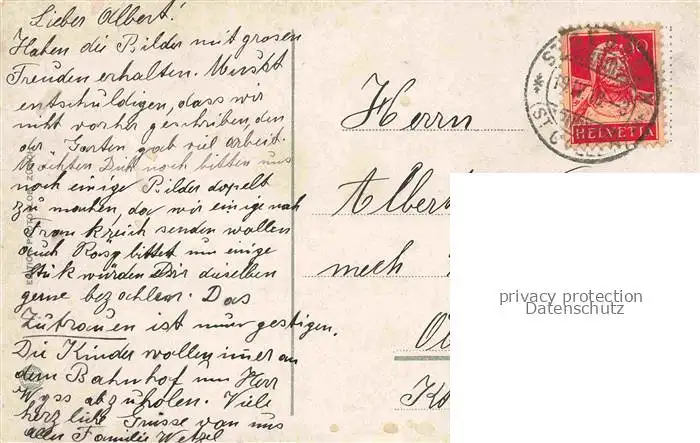 Lieber Albert!
Haben die Bilder mit grosen
Freuden erhalten. Muskt
entschuldigen, dass wir
nicht vorher geschrieben, den
der Garten gab viel arbeit.
Möchten Dich noch bitten uns
noch einige Bilder dopelt
zu machen, da wir einige nach
Frankreich senden wollen
auch Rösy bittet um einige
Stük würden Dir dieselben
gerne bezachlen. Das
Zutrauen ist nun gestigen.
Die Kinder wollen imer an
dem Bahnhof um Herr
Wyss abzuholen. Viele
herzliche Grüsse von uns
allen Familie Wetzel
Herrn
Albert
mech
HELVETIA
privacy protection
Datenschutz